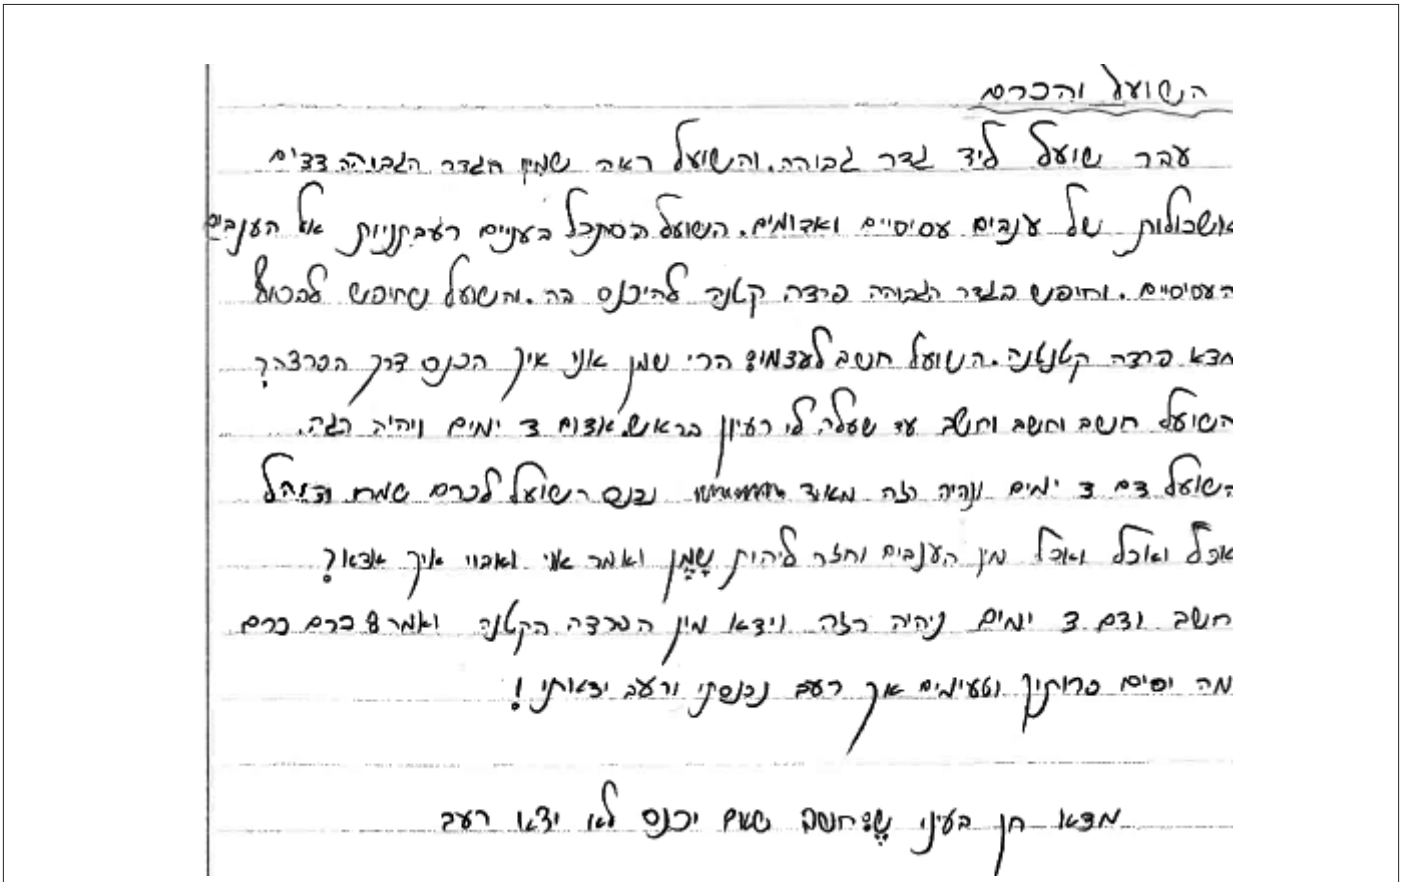 השועל והכרם
עבר שועל ליד גדר גבוהה. והשועל ראה שמין הגדר הגבוהה צצים
אושכולות של ענבים עסיסיים ואדומים. השועל הסתכל בעניים רעבתניות אל הענבים
העסיסיים. וחיפש בגדר הגבוהה פרצה קטנה להיכנס בה. והשועל שחיפש
מצא פרצה קטנטנה. השועל חשב לעצמו: הרי שמן אני איך הכנס דרך הפרצה?
השועל חשב וחשב וחשב עד שעלה לי רעיון בראש. אצום 3 ימים ויהיה רזה.
השועל צם 3 ימים ונהיה רזה מאוד נכנס השועל לכרם שמח
אכל ואוכל ואכל מין הענבים וחזר ליהות שָמֵן ואמר אוי ואבוי איך אצא?
חשב וצם 3 ימים ניהיה רזה ויצא מין הפרצה הקטנה ואמר: כרם כרם
מה יפים פרותיך וטעימים אך רעב נכנסתי ורעב יצאתי!
מצא חן בעיני שֶׁ חשב שאם יכנס לא יצא רעב